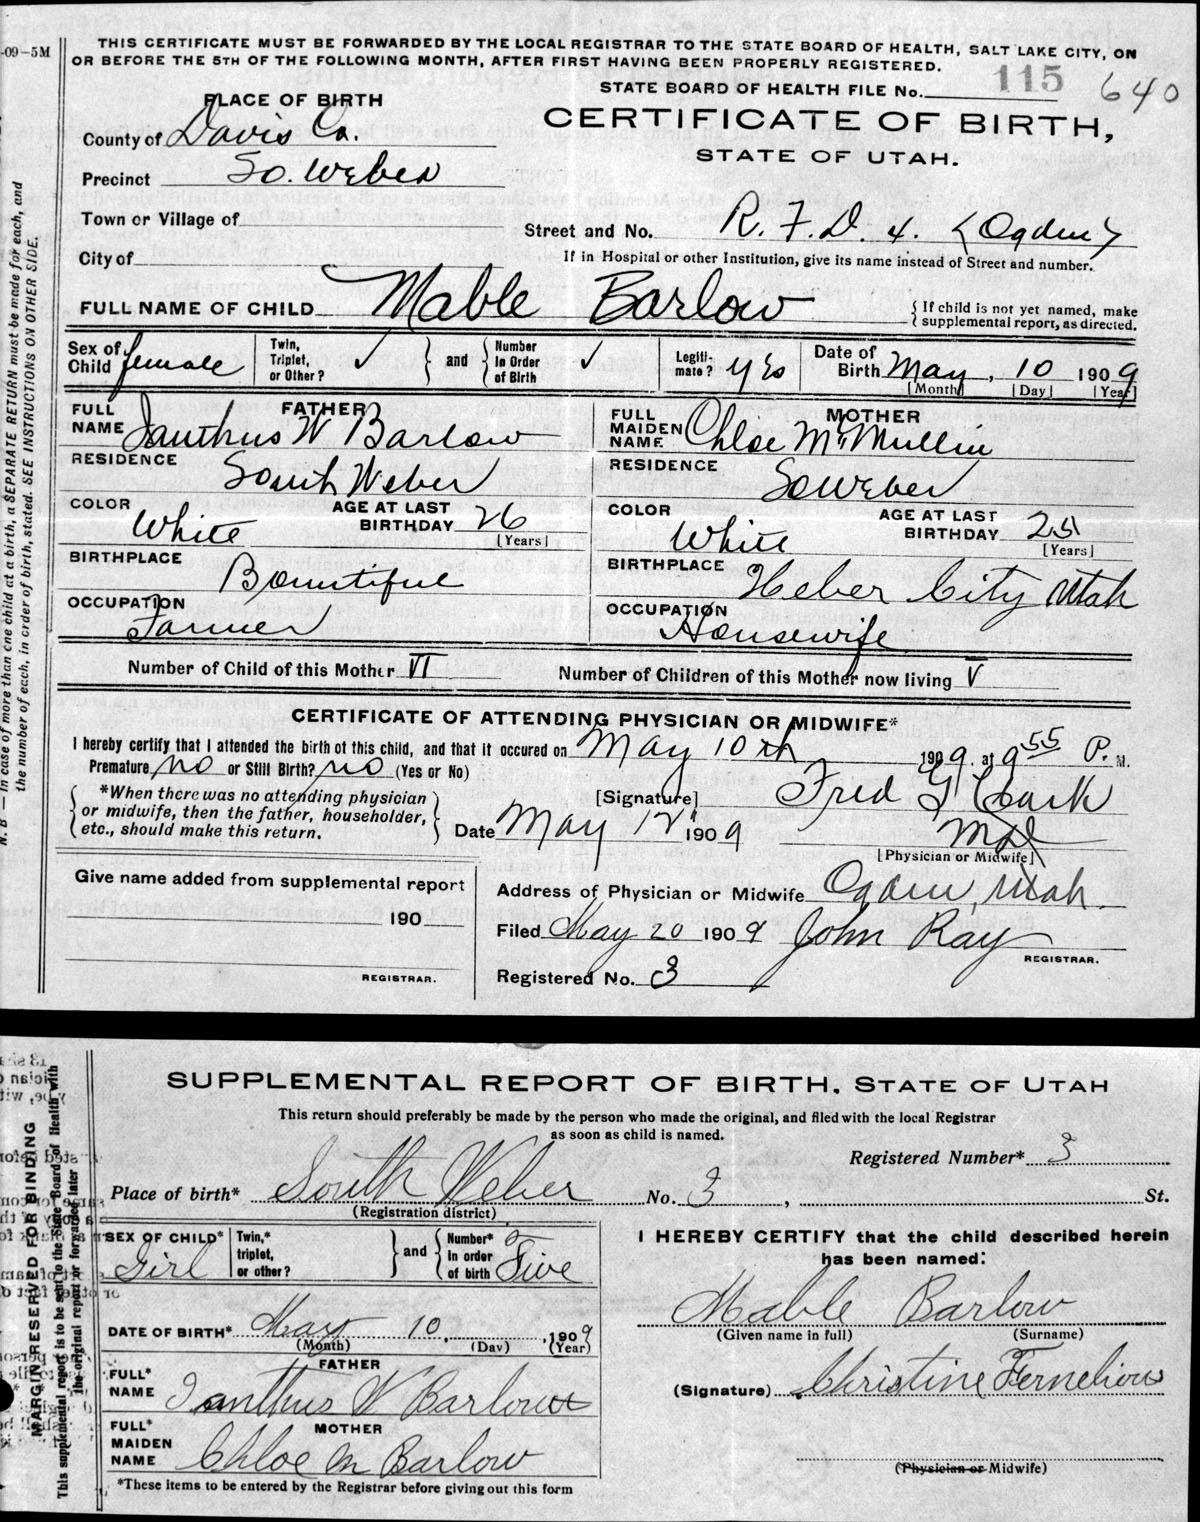 -09-5M
THIS CERTIFICATE MUST BE FORWARDED BY THE LOCAL REGISTRAR TO THE STATE BOARD OF HEALTH, SALT LAKE CITY, ON
OR BEFORE THE 5TH OF THE FOLLOWING MONTH, AFTER FIRST HAVING BEEN PROPERLY REGISTERED.
STATE BOARD OF HEALTH FILE No. 115 640
PLACE OF BIRTH
CERTIFICATE OF BIRTH,
STATE OF UTAH.
County of Davis Co.
Precinct So. Weber
Town or Village of
Street and No. R. F. D. 4. (Ogden)
City of
If in Hospital or other Institution, give its name instead of Street and number.
FULL NAME OF CHILD Mable Barlow
{ If child is not yet named, make supplemental report, as directed.
Sex of Child female
Twin, Triplet, or Other? ✓ } and { Number In Order of Birth ✓
Legiti-mate? yes
Date of Birth May, 10 1909
[Month] [Day] [Year]
FATHER
FULL NAME Ianthus W Barlow
MOTHER
FULL MAIDEN NAME Chloe McMullin
RESIDENCE South Weber
RESIDENCE So Weber
COLOR White AGE AT LAST BIRTHDAY 26 [Years]
COLOR White AGE AT LAST BIRTHDAY 25 [Years]
BIRTHPLACE Bountiful
BIRTHPLACE Heber City Utah
OCCUPATION Farmer
OCCUPATION Housewife
Number of Child of this Mother VI
Number of Children of this Mother now living V
CERTIFICATE OF ATTENDING PHYSICIAN OR MIDWIFE*
I hereby certify that I attended the birth of this child, and that it occured on May 10th 1909. at 9 55 P. M.
Premature no or Still Birth? no (Yes or No)
{ *When there was no attending physician or midwife, then the father, householder, etc., should make this return. }
[Signature] Fred G Clark
Date May 12 1909
MD
[Physician or Midwife]
Give name added from supplemental report
190
REGISTRAR.
Address of Physician or Midwife Ogden, Utah.
Filed May 20 1909 John Ray
REGISTRAR.
Registered No. 3
N. B — In case of more than one child at a birth, a SEPARATE RETURN must be made for each, and
the number of each, in order of birth, stated. SEE INSTRUCTIONS ON OTHER SIDE.
SUPPLEMENTAL REPORT OF BIRTH. STATE OF UTAH
This return should preferably be made by the person who made the original, and filed with the local Registrar
as soon as child is named.
Registered Number* 3
Place of birth* South Weber No. 3, St.
(Registration district)
SEX OF CHILD* Girl
Twin,* triplet, or other? } and { Number* In order of birth Five
I HEREBY CERTIFY that the child described herein
has been named:
Mable Barlow
(Given name in full) (Surname)
DATE OF BIRTH* May 10, 1909
(Month) (Day) (Year)
FATHER
FULL* NAME Ianthus W Barlow
(Signature) Christine Fernelious
MOTHER
FULL* MAIDEN NAME Chloe M Barlow
(Physician or Midwife)
*These items to be entered by the Registrar before giving out this form
MARGIN RESERVED FOR BINDING
This supplemental report is to be sent to the State Board of Health with
the original report or forwarded later